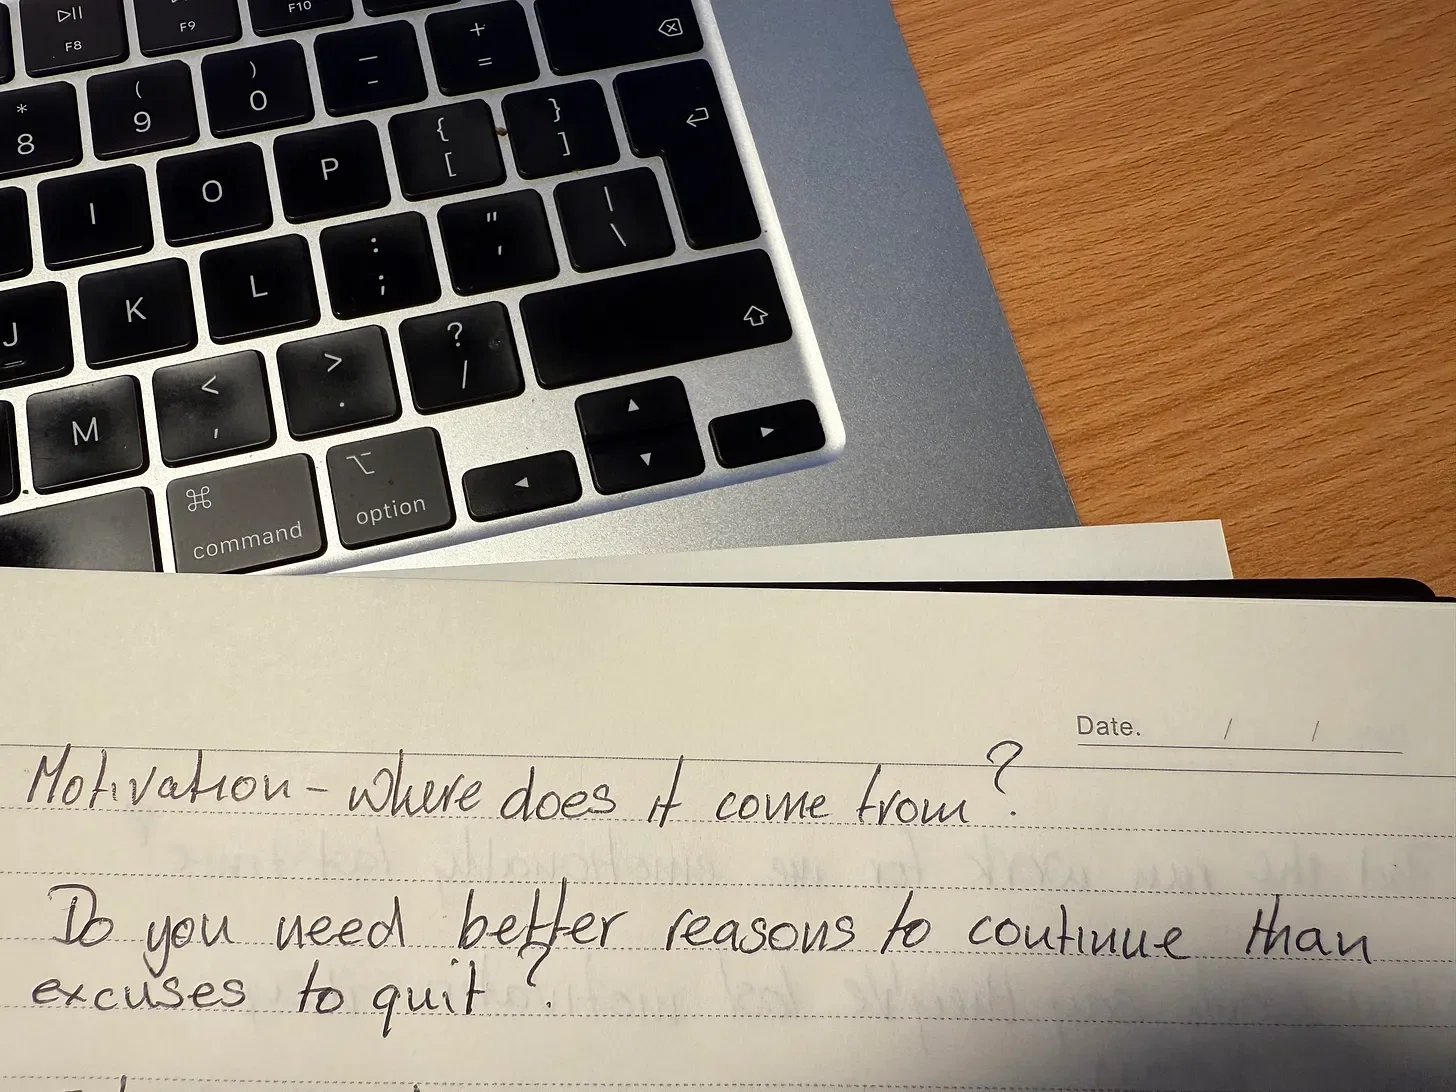 F8
F9
F10
*
8
(
9
)
0
—
-
+
=
I
O
P
{
[
}
]
J
K
L
:
;
"
'
|
\
M
<
,
>
.
?
/
⌘
command
⌥
option
Date. / /
Motivation - where does it come from?
Do you need better reasons to continue than
excuses to quit?